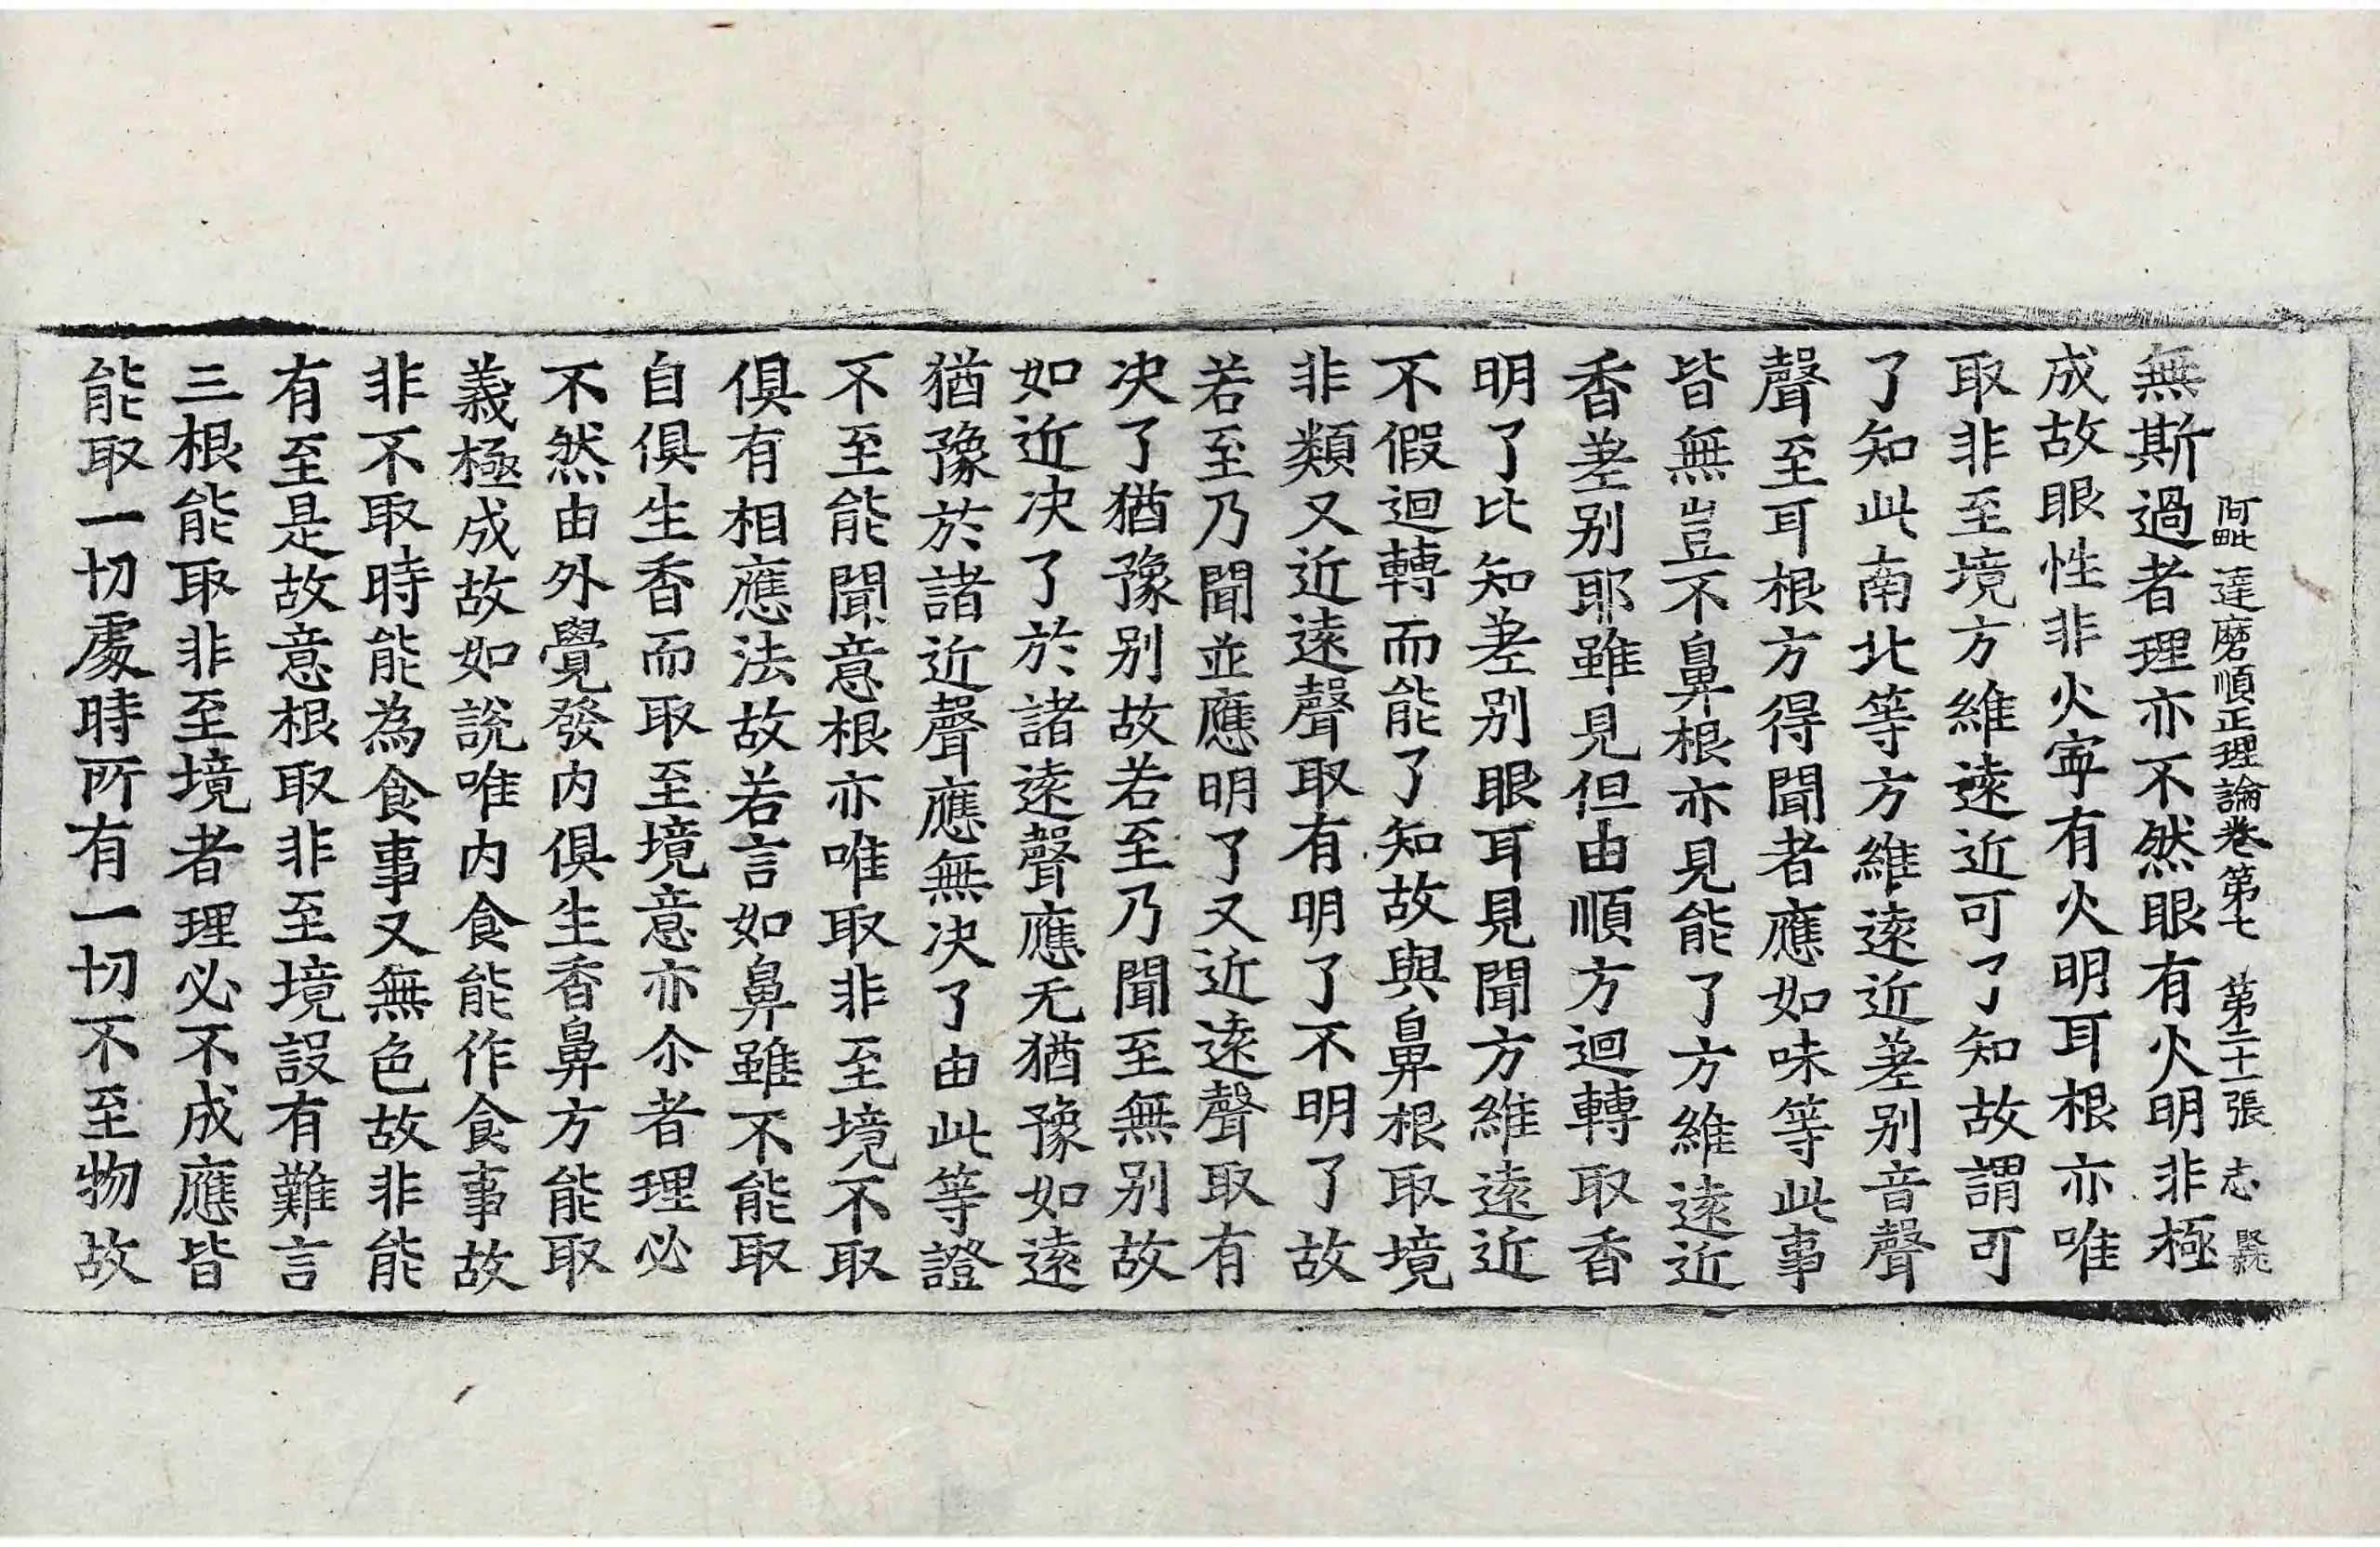 阿毗達磨順正理論卷第七 第二十一張 志
無斯過者理亦不然眼有火明非極
成故眼性非火寧有火明耳根亦唯
取非至境方維遠近可了知故謂可
了知此南北等方維遠近差别音聲
聲至耳根方得聞者應如味等此事
皆無豈不鼻根亦見能了方維遠近
香差别耶雖見但由順方迴轉取香
明了比知差别眼耳見聞方維遠近
不假迴轉而能了知故與鼻根取境
非類又近遠聲取有明了不明了故
若至乃聞並應明了又近遠聲取有
决了猶豫别故若至乃聞至無别故
如近决了於諸遠聲應无猶豫如遠
猶豫於諸近聲應無决了由此等證
不至能聞意根亦唯取非至境不取
俱有相應法故若言如鼻雖不能取
自俱生香而取至境意亦尒者理必
不然由外覺發内俱生香鼻方能取
義極成故如說唯内食能作食事故
非不取時能為食事又無色故非能
有至是故意根取非至境設有難言
三根能取非至境者理必不成應皆
能取一切處時所有一切不至物故